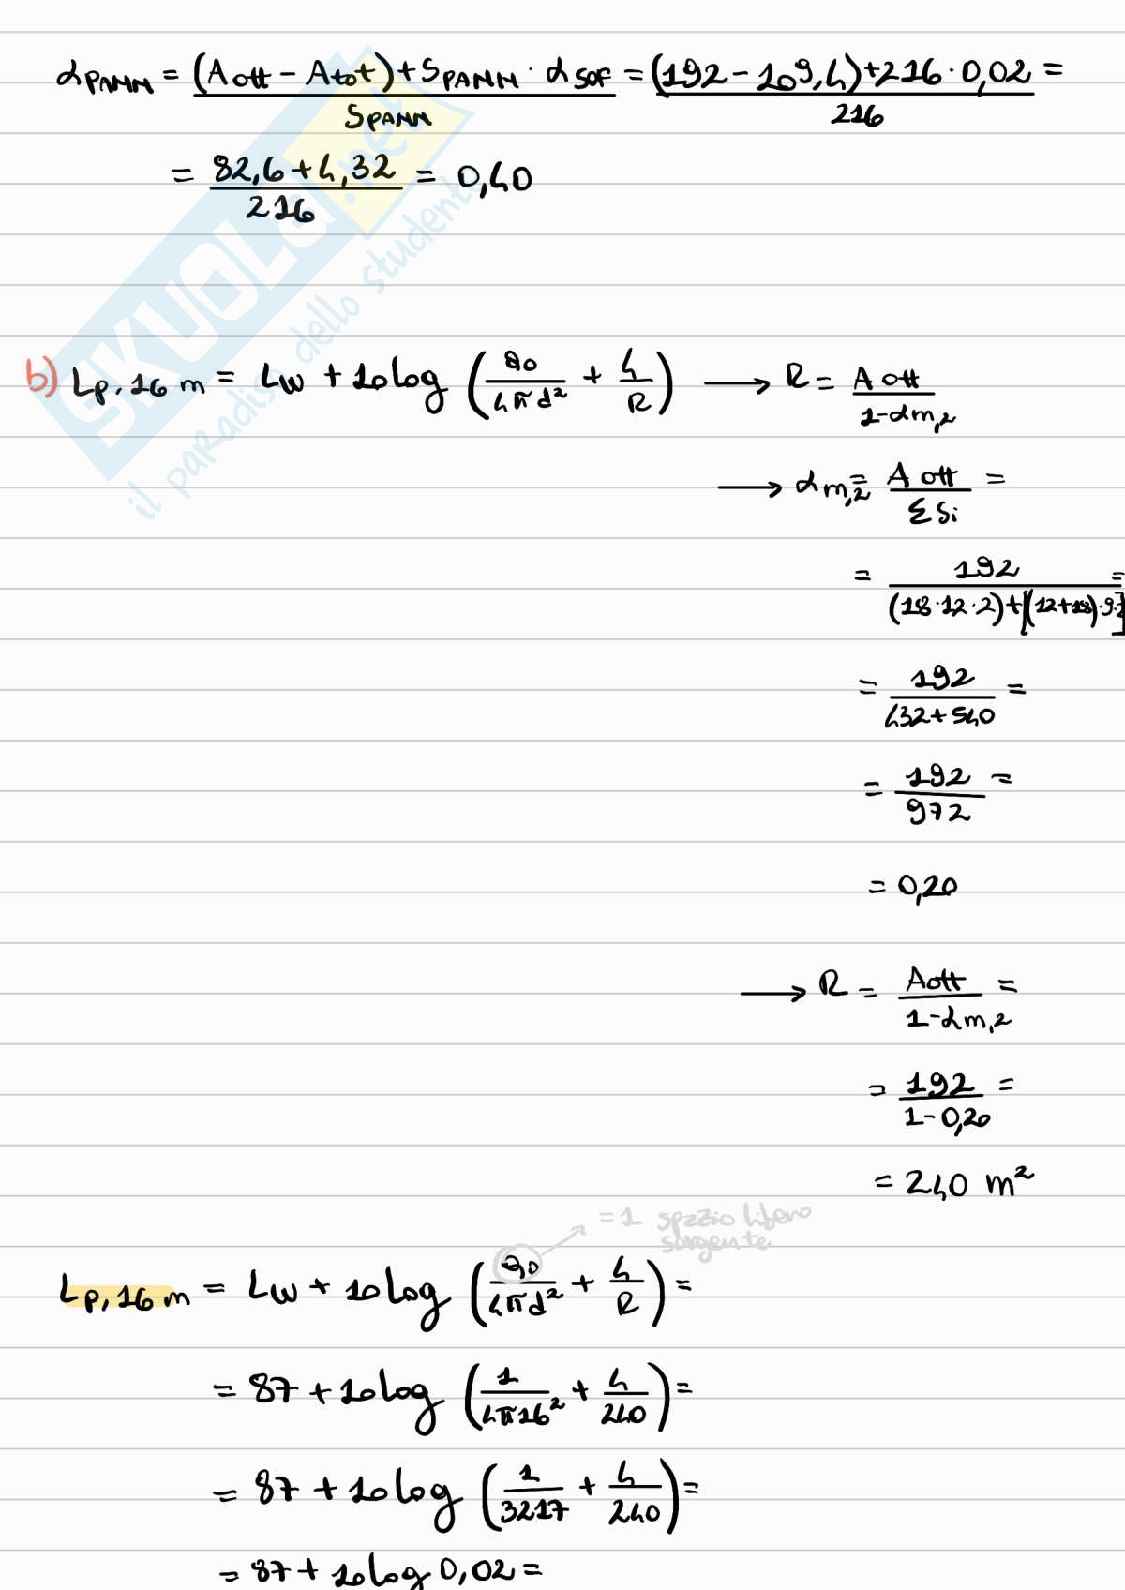 α PANN = (A ott - A tot) + S PANN · α SOF / S PANN = (192 - 109,4) + 216 · 0,02 / 216 =
= 82,6 + 4,32 / 216 = 0,40
SKUOLA.net
il paradiso dello studente
b) Lp,16 m = Lw + 10 log (Q0 / 4πd² + 4 / R) → R = A ott / 1-αm,2
→ αm,2 = A ott / Σ Si =
= 192 / (18·12·2)+[(12+18)·9·2] =
= 192 / 432+540 =
= 192 / 972 =
= 0,20
→ R = A ott / 1-αm,2 =
= 192 / 1-0,20 =
= 240 m²
= 1 spazio libero
sorgente
Lp,16 m = Lw + 10 log (Q0 / 4πd² + 4 / R) =
= 87 + 10 log (1 / 4π16² + 4 / 240) =
= 87 + 10 log (1 / 3217 + 4 / 240) =
= 87 + 10 log 0,02 =